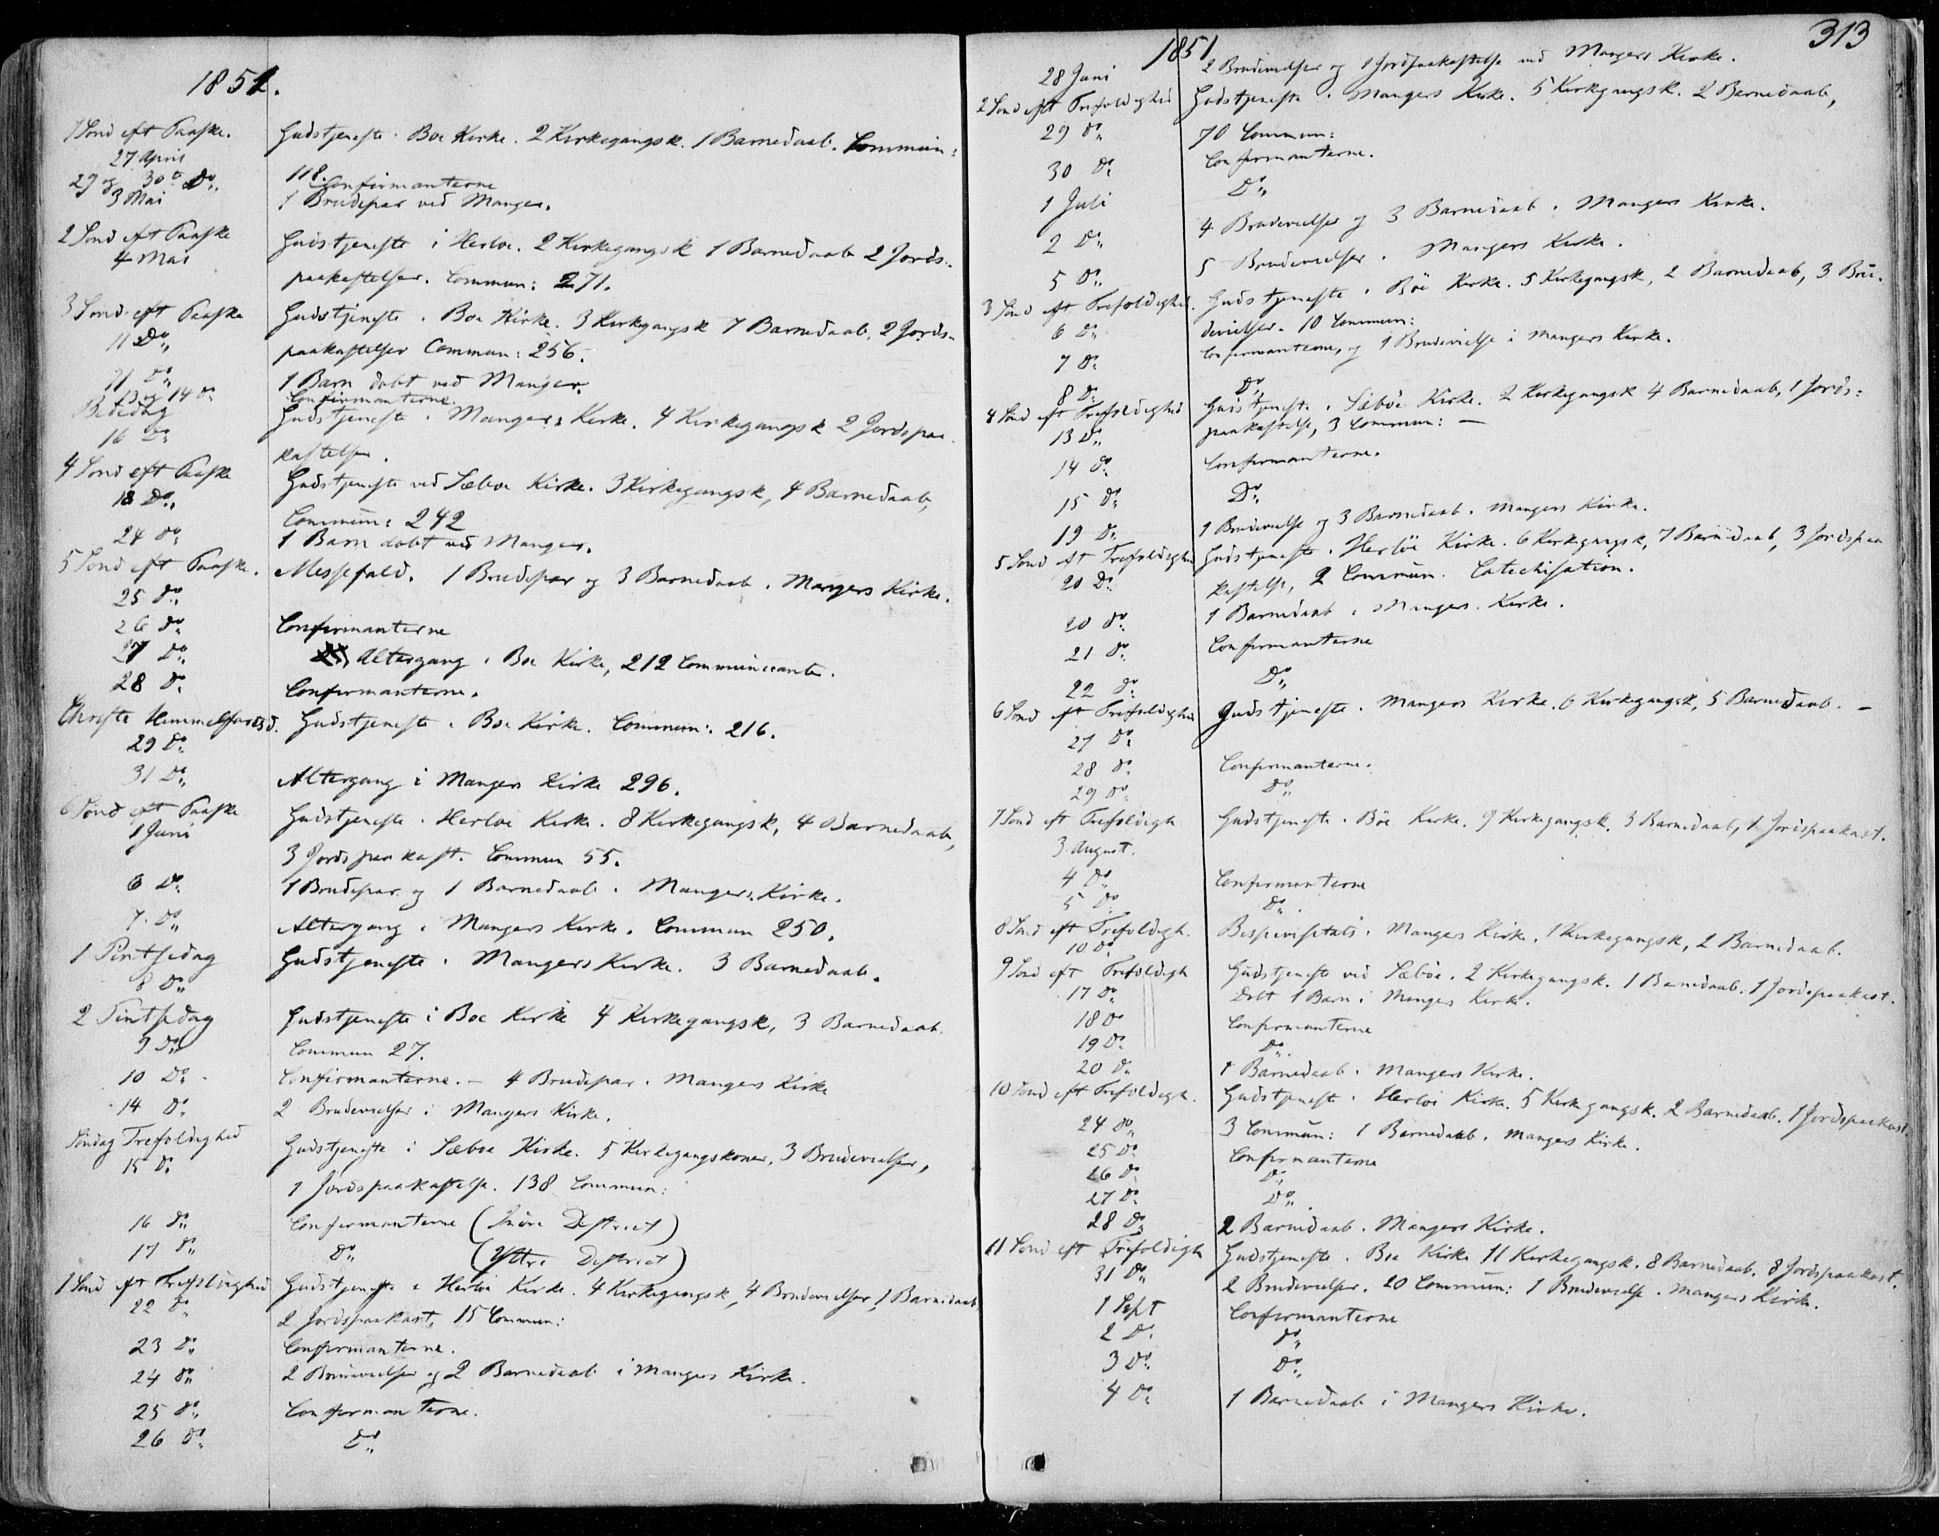 1851.
1 Sond eft Paaske. Gudstjeneste i Boe Kirke. 2 Kirkegangsk. 1 Barnedaab. Commun:
27 April 118.
29 og 30te Do Confirmanterne
3 Mai 1 Brudepar ved Manger.
2 Sond eft Paaske Gudstjeneste i Herloe. 2 Kirkegangsk 1 Barnedaab 2 Jords-
4 Mai paakastelser. Commun: 271.
3 Sond eft Paaske Gudstjeneste i Boe Kirke. 3 Kirkegangsk 7 Barnedaab, 2 Jords-
11 Do paakastelser Commun: 256.
11 Do 1 Barn døbt ved Manger.
13 og 14 Do Confirmanterne.
Bededag Gudstjeneste i Mangers Kirke. 4 Kirkegangsk 2 Jordspaa-
16 Do kastelser.
4 Sond eft Paaske Gudstjeneste ved Sæboe Kirke. 3 Kirkegangsk, 4 Barnedaab,
18 Do Commun: 242
24 Do 1 Barn døbt ved Manger.
5 Sond eft Paaske. Messefald. 1 Brudepar og 3 Barnedaab i Mangers Kirke.
25 Do
26 Do Confirmanterne
27 Do Altergang i Boe Kirke, 212 Communicante.
28 Do Confirmanterne.
Christi Himmelfartsd. Gudstjeneste i Boe Kirke. Commun: 216.
29 Do
31 Do Altergang i Mangers Kirke 296.
6 Sond eft Paaske Gudstjeneste i Herloe Kirke. 8 Kirkegangsk, 4 Barnedaab,
1 Juni 3 Jordspaakast. Commun 55.
6 Do 1 Brudepar og 1 Barnedaab i Mangers Kirke.
7 Do Altergang i Mangers Kirke. Commun 250.
1 Pintsedag Gudstjeneste i Mangers Kirke. 3 Barnedaab.
8 Do
2 Pintsedag Gudstjeneste i Boe Kirke 4 Kirkegangsk, 3 Barnedaab.
9 Do Commun 27.
10 Do Confirmanterne. - 4 Brudepar i Mangers Kirke
14 Do 2 Brudevielser i Mangers Kirke.
Søndag Trefoldighed Gudstjeneste i Sæboe Kirke. 5 Kirkegangskoner, 3 Brudevielser,
15 Do 1 Jordspaakastelse. 138 Commun:
16 Do Confirmanterne (Indre District)
17 Do Do (Yttre District)
1 Sond eft Trefoldighed Gudstjeneste i Herloe Kirke. 4 Kirkegangsk, 4 Brudevielser, 1 Barnedaab
22 Do 2 Jordspaakast, 15 Commun:
23 Do Confirmanterne.
24 Do 2 Brudevielser og 2 Barnedaab i Mangers Kirke.
25 Do Confirmanterne.
26 Do Do
313
1851
28 Juni 2 Brudevielser og 1 Jordpaakastelse ved Mangers Kirke.
2 Sond eft Trefoldighed Gudstjeneste i Mangers Kirke. 5 Kirkegangsk. 2 Barnedaab,
29 Do 70 Commun:
30 Do Confirmanterne.
1 Juli Do
2 Do 4 Brudevielser og 3 Barnedaab i Mangers Kirke.
5 Do 5 Brudevielser i Mangers Kirke.
3 Sond eft Trefoldighed. Gudstjeneste i Böe Kirke. 5 Kirkegangsk, 2 Barnedaab, 3 Bru-
6 Do devielser. 10 Commun:
7 Do Confirmanterne, og 1 Brudevielse i Mangers Kirke.
8 Do Do
4 Sond eft Trefoldighed Gudstjeneste i Sæböe Kirke. 2 Kirkegangsk 4 Barnedaab, 1 Jords-
13 Do paakastelse, 3 Commun: -
14 Do Confirmanterne.
15 Do Do
19 Do 1 Brudevielse og 3 Barnedaab i Mangers Kirke.
5 Sond eft Trefoldighed Gudstjeneste i Herlöe Kirke. 6 Kirkegangsk, 7 Barnedaab, 3 Jordspaa-
20 Do kastelse, 2 Commun. Catechisation.
20 Do 1 Barnedaab i Mangers Kirke.
21 Do Confirmanterne
22 Do Do
6 Sond eft Trefoldighed Gudstjeneste i Mangers Kirke. 6 Kirkegangsk, 5 Barnedaab. -
27 Do
28 Do Confirmanterne.
29 Do Do
7 Sond eft Trefoldigh Gudstjeneste i Böe Kirke. 9 Kirkegangsk. 3 Barnedaab, 1 Jordspaakast.
3 August.
4 Do Confirmanterne
5 Do Do
8 Sond eft Trefoldigh. Bispevisitats i Mangers Kirke, 1 Kirkegangsk, 2 Barnedaab.
10 Do
9 Sond eft Trefoldigh Gudstjeneste ved Sæböe. 2 Kirkegangsk. 1 Barnedaab. 1 Jordspaakast.
17 Do Døbt 1 Barn i Mangers Kirke.
18 Do Confirmanterne
19 Do Do
20 Do 1 Barnedaab i Mangers Kirke.
10 Sond eft Trefoldigh. Gudstjeneste i Herloe Kirke. 5 Kirkegangsk. 2 Barnedaab. 1 Jordspaakast.
24 Do 3 Commun: 1 Barnedaab i Mangers Kirke.
25 Do Confirmanterne
26 Do Do
27 Do Do
28 Do 2 Barnedaab i Mangers Kirke.
11 Sond eft Trefoldigh Gudstjeneste i Boe Kirke 11 Kirkegangsk. 8 Barnedaab. 8 Jordspaakast.
31 Do 2 Brudevielser. 20 Commun: 1 Brudevielse i Mangers Kirke.
1 Sept Confirmanterne
2 Do Do
3 Do Do
4 Do 1 Barnedaab i Mangers Kirke.